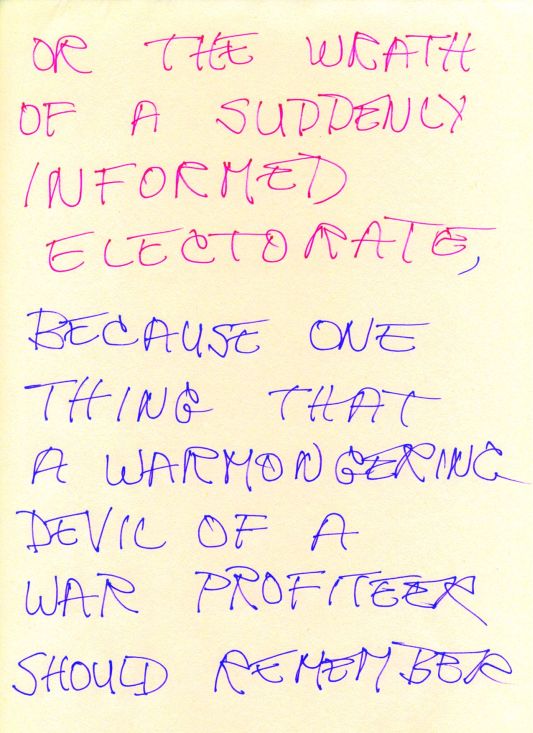 OR THE WRATH
OF A SUDDENLY
INFORMED
ELECTORATE,
BECAUSE ONE
THING THAT
A WARMONGERING
DEVIL OF A
WAR PROFITEER
SHOULD REMEMBER